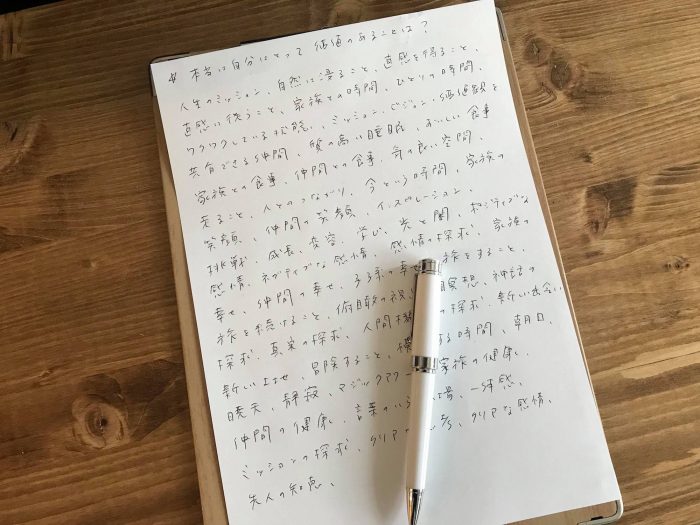 本当に自分にとって価値のあることは?
人生のミッション、自然に浸ること、直感を得ること、
直感に従うこと、家族との時間、ひとりの時間、
ワクワクしている状態、ミッション・ビジョン・価値観を
共有できる仲間、質の高い睡眠、おいしい食事
家族との食事、仲間との食事、気の良い空間、
走ること、人とのつながり、今という時間、家族の
笑顔、仲間の笑顔、インスピレーション、
挑戦、成長、変容、学び、光と闇、ポジティブな
感情、ネガティブな感情、感情の探求、家族の
幸せ、仲間の幸せ、子孫の幸せ 旅をすること、
旅を続けること、俯瞰の視 瞑想、神話の
探求、真実の探求、人間 探求、新しい出会い
新しい 、冒険すること、 する時間、朝日、
暁天、静寂、マジックアワー 家族の健康、
仲間の健康、言葉の 、一体感、
ミッションの探求、クリアな 、クリアな感情、
先人の知恵、